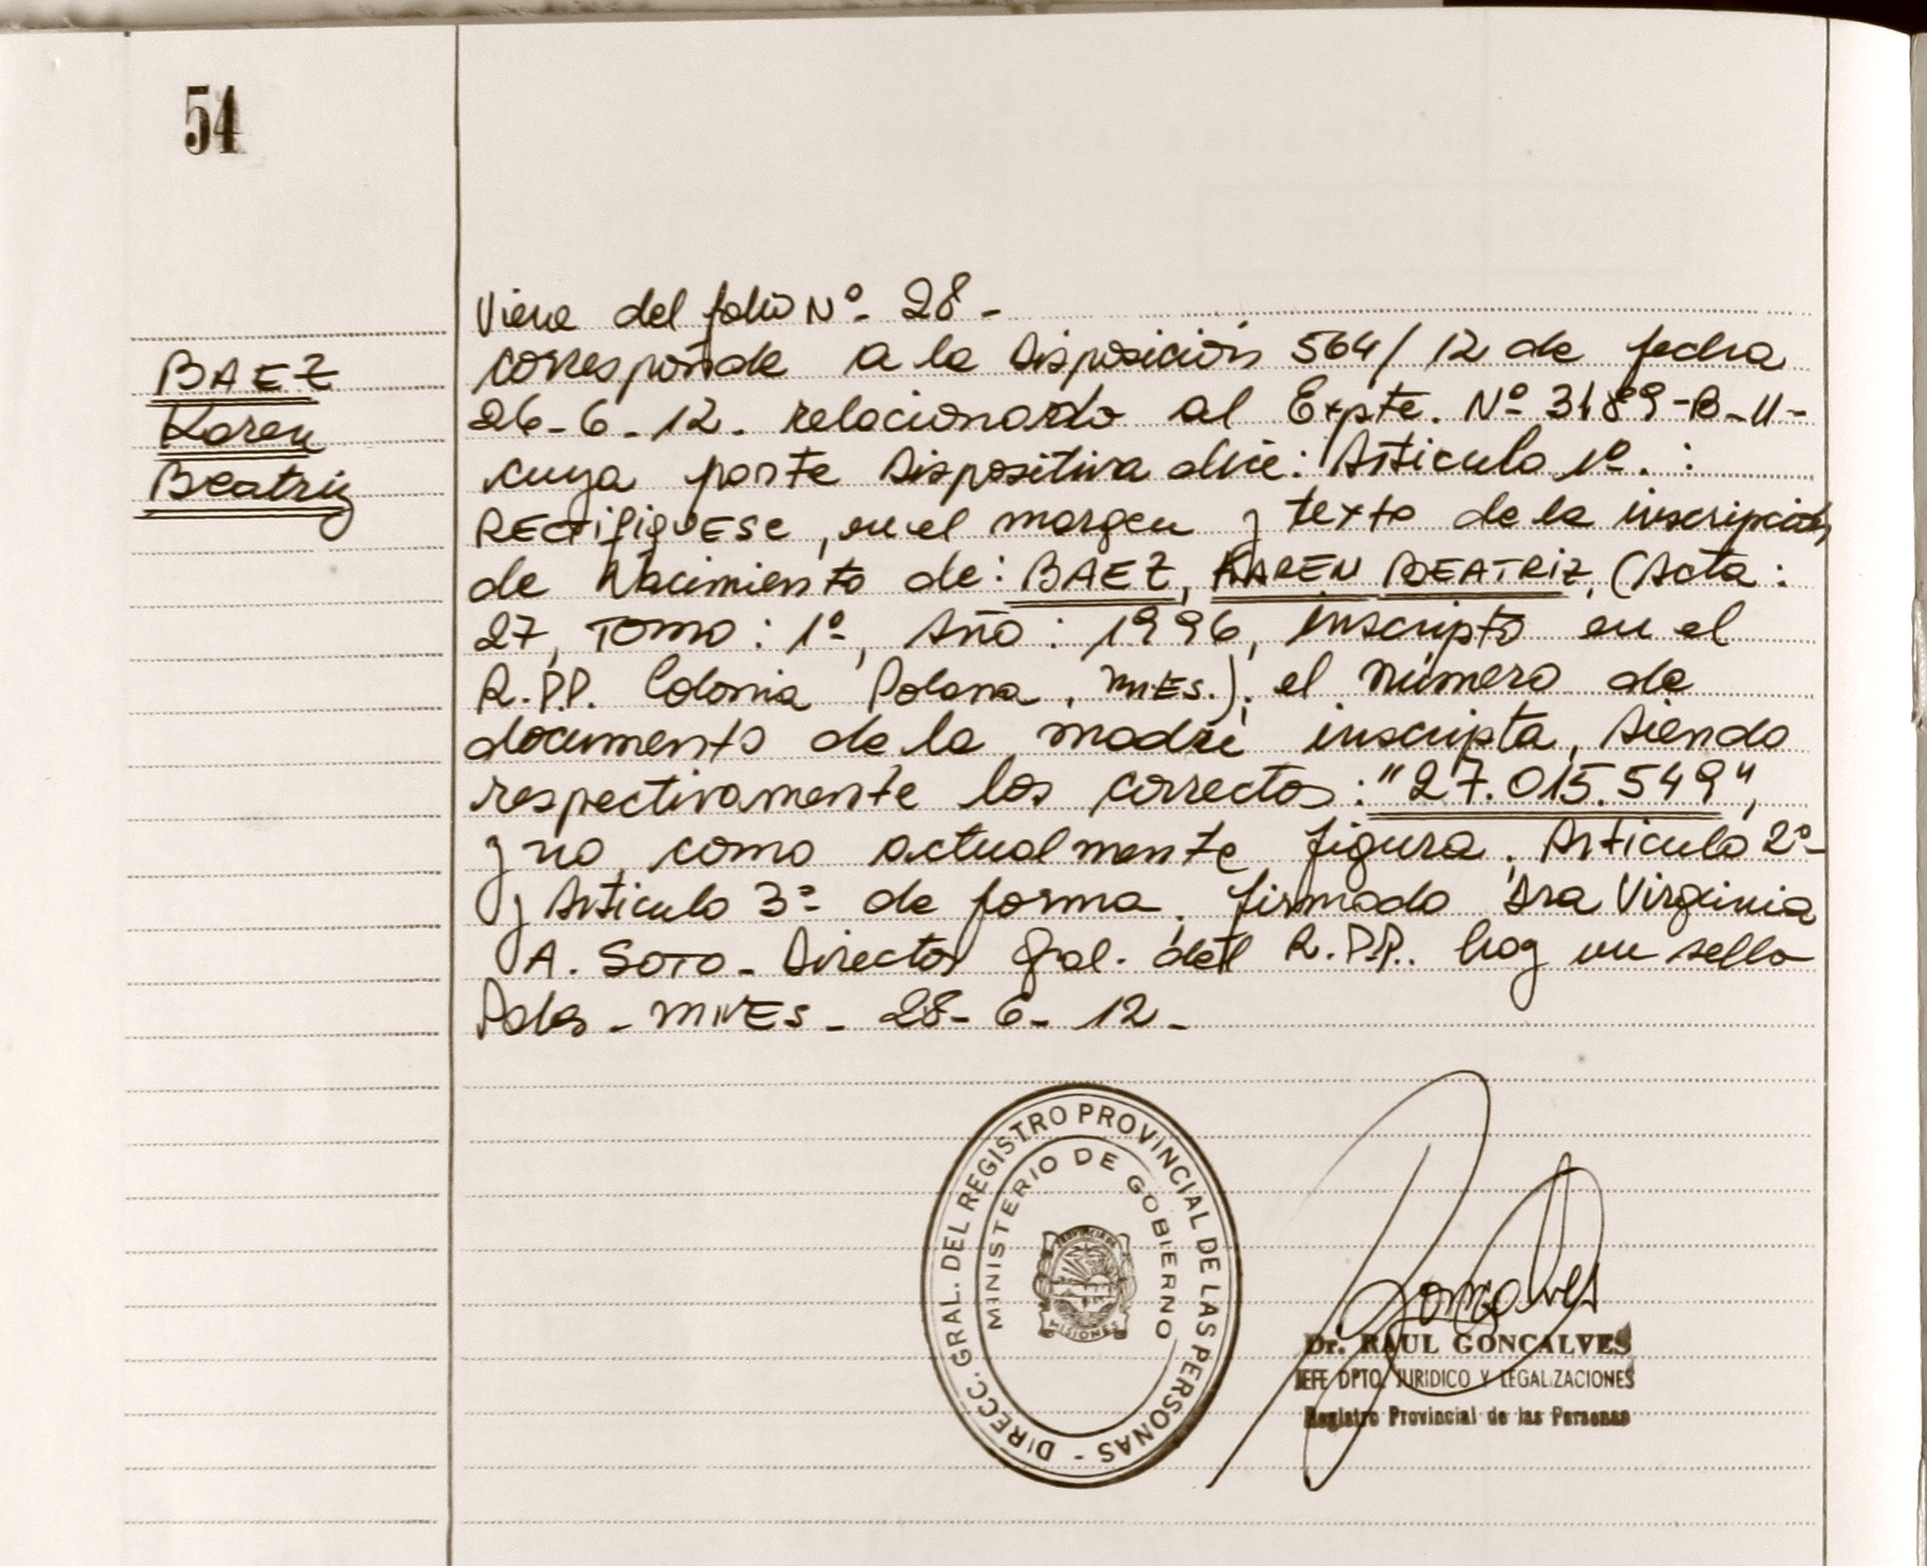 54
BAEZ
Karen
Beatriz
Viene del folio Nº 28 -
corresponde a la Disposición 564/12 de fecha
26-6-12. relacionado al Expte. Nº 3189-B-11-
cuya parte Dispositiva dice: Articulo 1º. :
RECTIFIQUESE, en el margen y texto de la inscripción
de Nacimiento de: BAEZ, KAREN BEATRIZ, (Acta:
27, TOMO: 1º, Año: 1996, inscripto en el
R.P.P. Colonia Polana, MnES.); el número de
documento de la madre inscripta, siendo
respectivamente los correctos: "27.015.549",
y no como actualmente figura. Articulo 2º-
y Articulo 3º de forma, firmado Dra Virginia
A. SOTO - Director Gral. del R.P.P. hay un sello
Pdas - MnES - 28-6-12 -
DIRECC. GRAL. DEL REGISTRO PROVINCIAL DE LAS PERSONAS -
MINISTERIO DE GOBIERNO
PROVINCIA DE
MISIONES
Dr. RAUL GONCALVES
JEFE DPTO. JURIDICO Y LEGALIZACIONES
Registro Provincial de las Personas